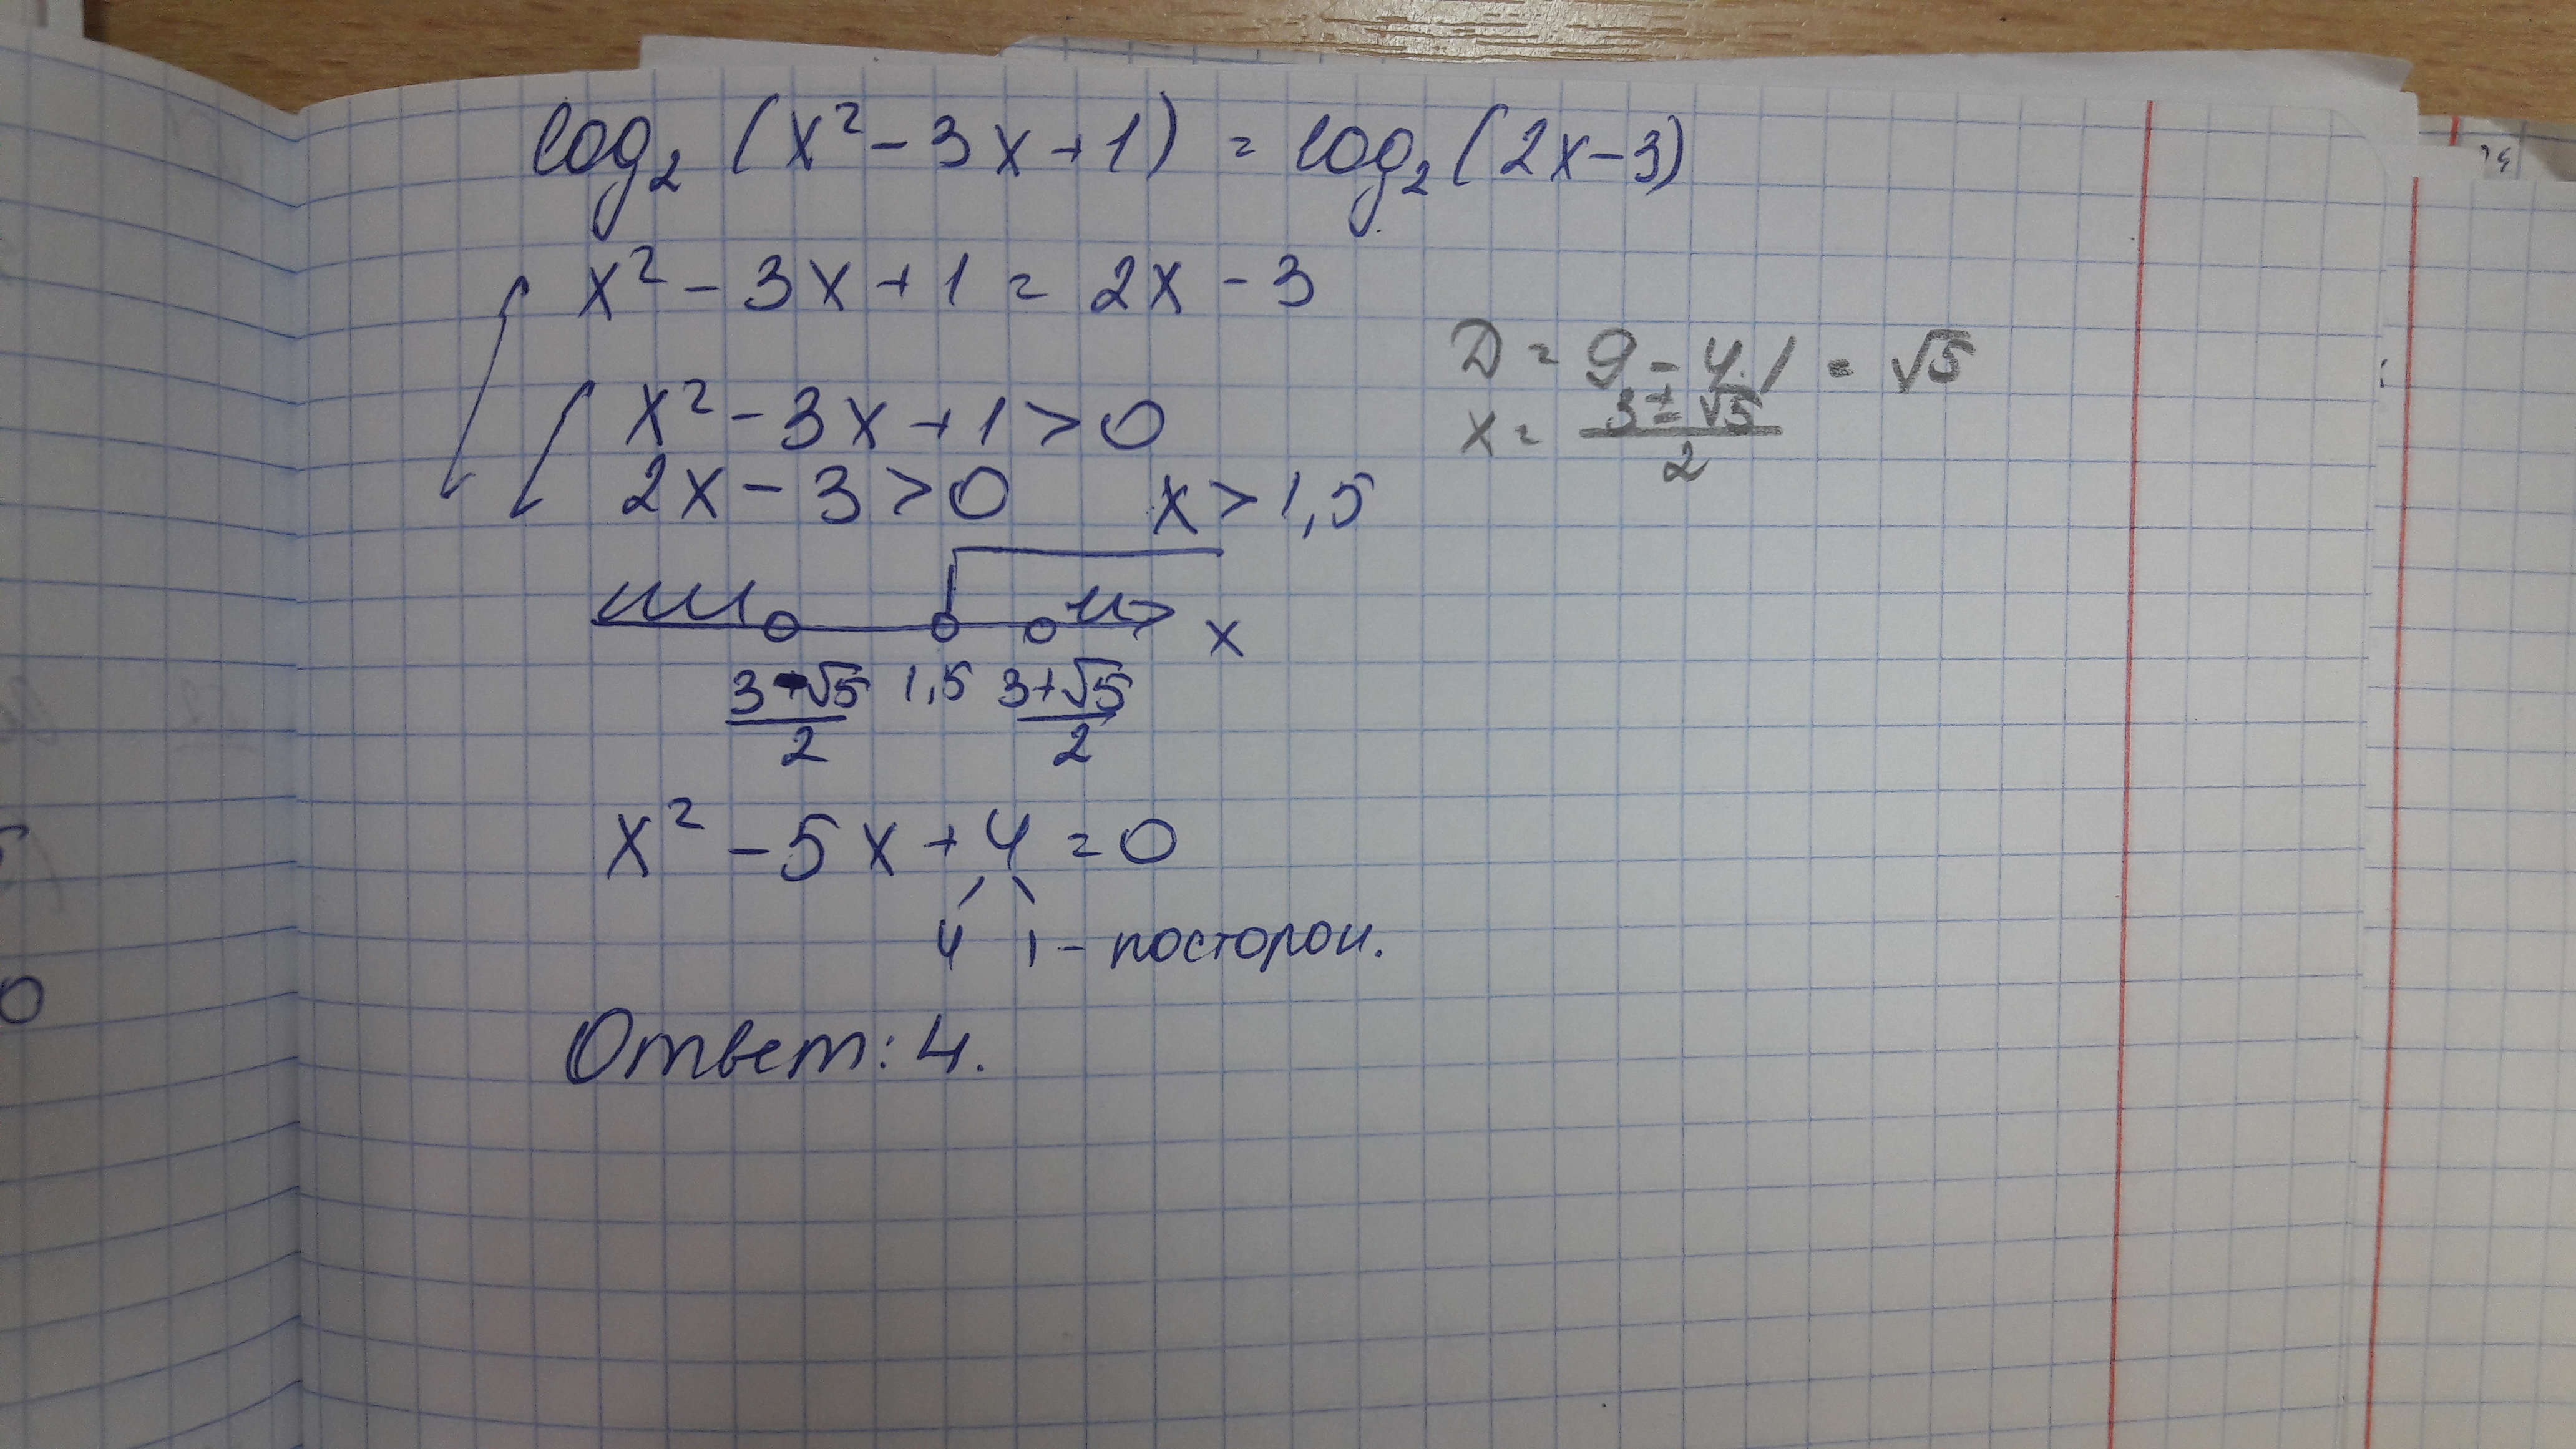 log₂ (x² - 3x + 1) = log₂ (2x - 3)
x² - 3x + 1 = 2x - 3
x² - 3x + 1 > 0
D = 9 - 4·1 = √5
x = (3 ± √5)/2
2x - 3 > 0 x > 1,5
x
(3 - √5)/2 1,5 (3 + √5)/2
x² - 5x + 4 = 0
4 1 - посторон.
Ответ: 4.